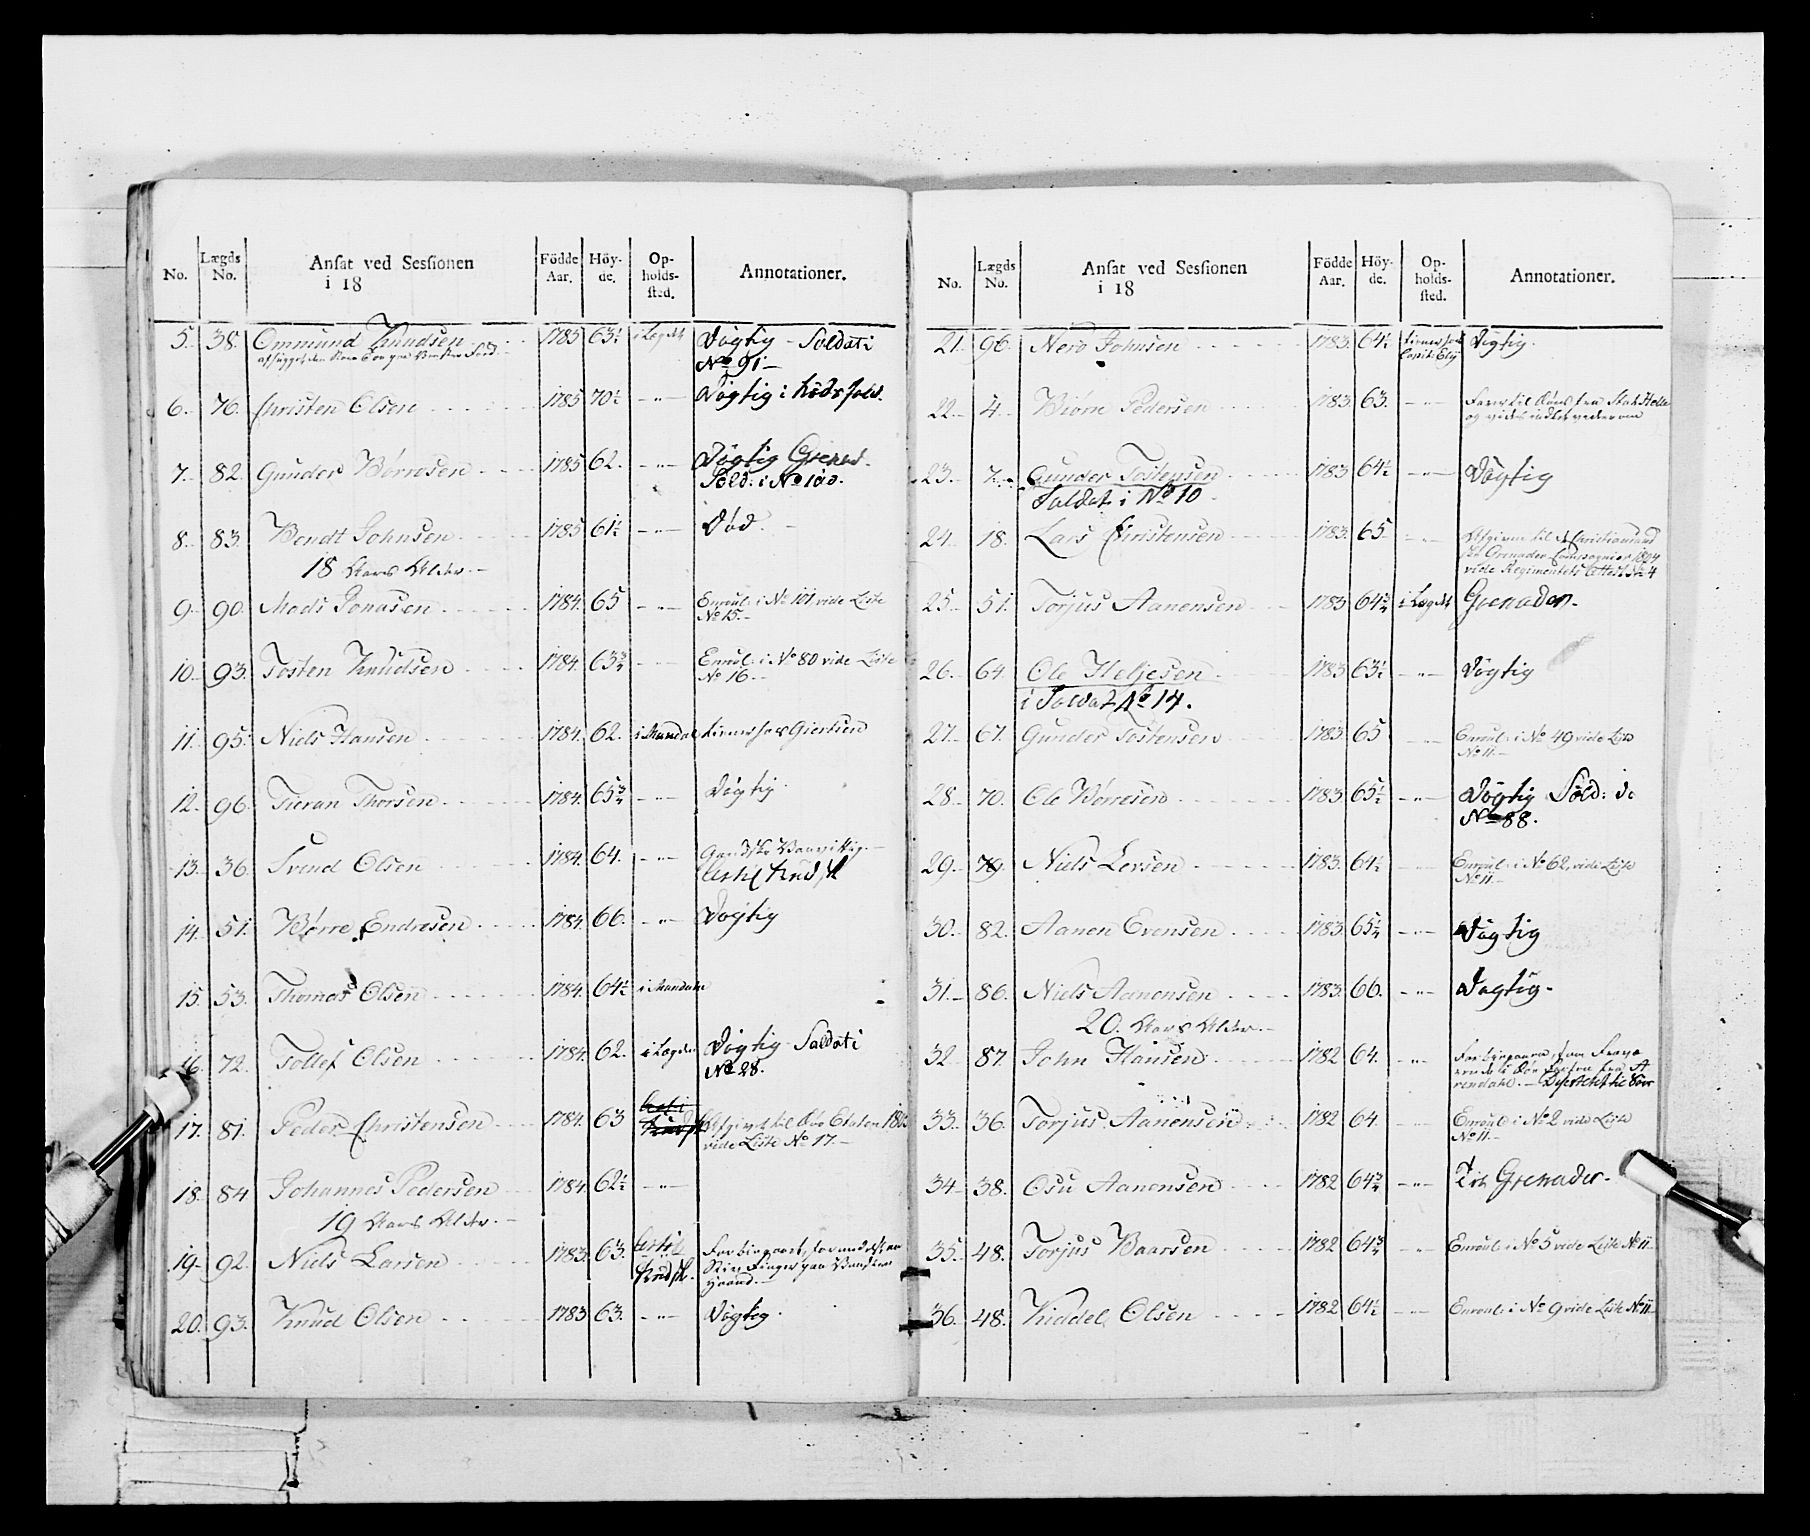 No. Lægds No. Ansat ved Sessionen i 18 Födde Aar. Höyde. Opholdssted. Annotationer.
5. 38. Ommund Knudsen 1785 63½ i Legdet Døgtig - Soldat i
No 91 -
6. 76. Christen Olsen 1785 70½ - " - Døgtig i
7. 82. Gunder Børresen 1785 62. - " - Døgtig Grenad.
Sold: i No 100.
8. 83. Bendt Johnsen 1785 61½ - " - Død.
18 Aars Alder. -
9. 90. Mads Jonasen 1784. 65 - " - Enroul: i No 101 vide Liste
No 15. -
10. 93. Tosten Knudsen 1784. 63¾ - " - Enroul: i No 80 vide Liste
No 16. -
11. 95. Niels Hansen 1784. 62. i Mandal tiener hos Giertsen
12. 96. Tieran Thorsen 1784. 65¾ - " - Døgtig.
13. 36. Svend Olsen 1784. 64. - " - Gandske Vanvittig. -
14. 51. Børre Endresen 1784. 66. - " - Døgtig
15. 53. Thomas Olsen 1784. 64½ i Mandal
16. 72. Tollef Olsen 1784. 62. i Legdet Døgtig - Soldat i
No 28.
17. 81. Peder Christensen 1784. 63 Afgivet til Søe Etaten
vide Liste No 17. -
18. 84 Johannes Pedersen 1784. 62½ - " -
19 Aars Alder. -
19. 92. Niels Larsen 1783. 63.
20. 93. Knud Olsen 1783 63. - " - Døgtig.
No. Lægds No. Ansat ved Sessionen i 18 Födde Aar. Höyde. Opholdssted. Annotationer.
21. 96. Nero Johnsen 1783. 64½ tiener hos Døgtig.
22. 4. Biørn Pedersen 1783 63. - " -
23. 7. Gunder Tostensen 1783 64½ - " - Døgtig
Saldat i No 10
24. 18. Lars Christensen 1783. 65 - " - Afgiven til Christiansand
Grenader Compagnier 1804
vide Regimentets Attest No 4
25. 51. Torjus Aanensen 1783 64¾ i Legdet Grenader.
26. 64. Ole Heljesen 1783 63½ - " - Døgtig
i Soldat No 14.
27. 67. Gunder Tostensen 1783 65 - " - Enroul: i No 49 vide Liste
No 11. -
28. 70. Ole Børresen 1783. 65½ - " - Døgtig Sold: i
No 88.
29. 79. Niels Larsen 1783. 64½ - " - Enroul: i No 62, vide Liste
No 11. -
30. 82. Aanen Evensen 1783. 65¼ - " - Døgtig
31. 86. Niels Aanensen 1783. 66. - " - Døgtig -
20. Aars Alder. -
32. 87. John Hansen 1782 64. - " -
33. 36. Torjus Aanensen 1782 64. - " - Enroul: i No 2 vide Liste
No 11. -
34. 38. Osu Aanensen 1782 64¾ - " - Grenader.
35. 48. Torjus Baarsen 1782 64¾ - " - Enroul: i No 5 vide Liste No 11
36. 48. Kiddel Olsen 1782 64½ - " - Enroul: i No 9 vide Liste No 11